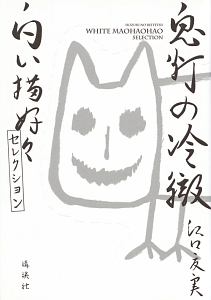 HOZUKI NO REITETSU
WHITE MAOHAOHAO
SELECTION
鬼灯の冷徹
白い猫好々
セレクション
江口夏実
講談社